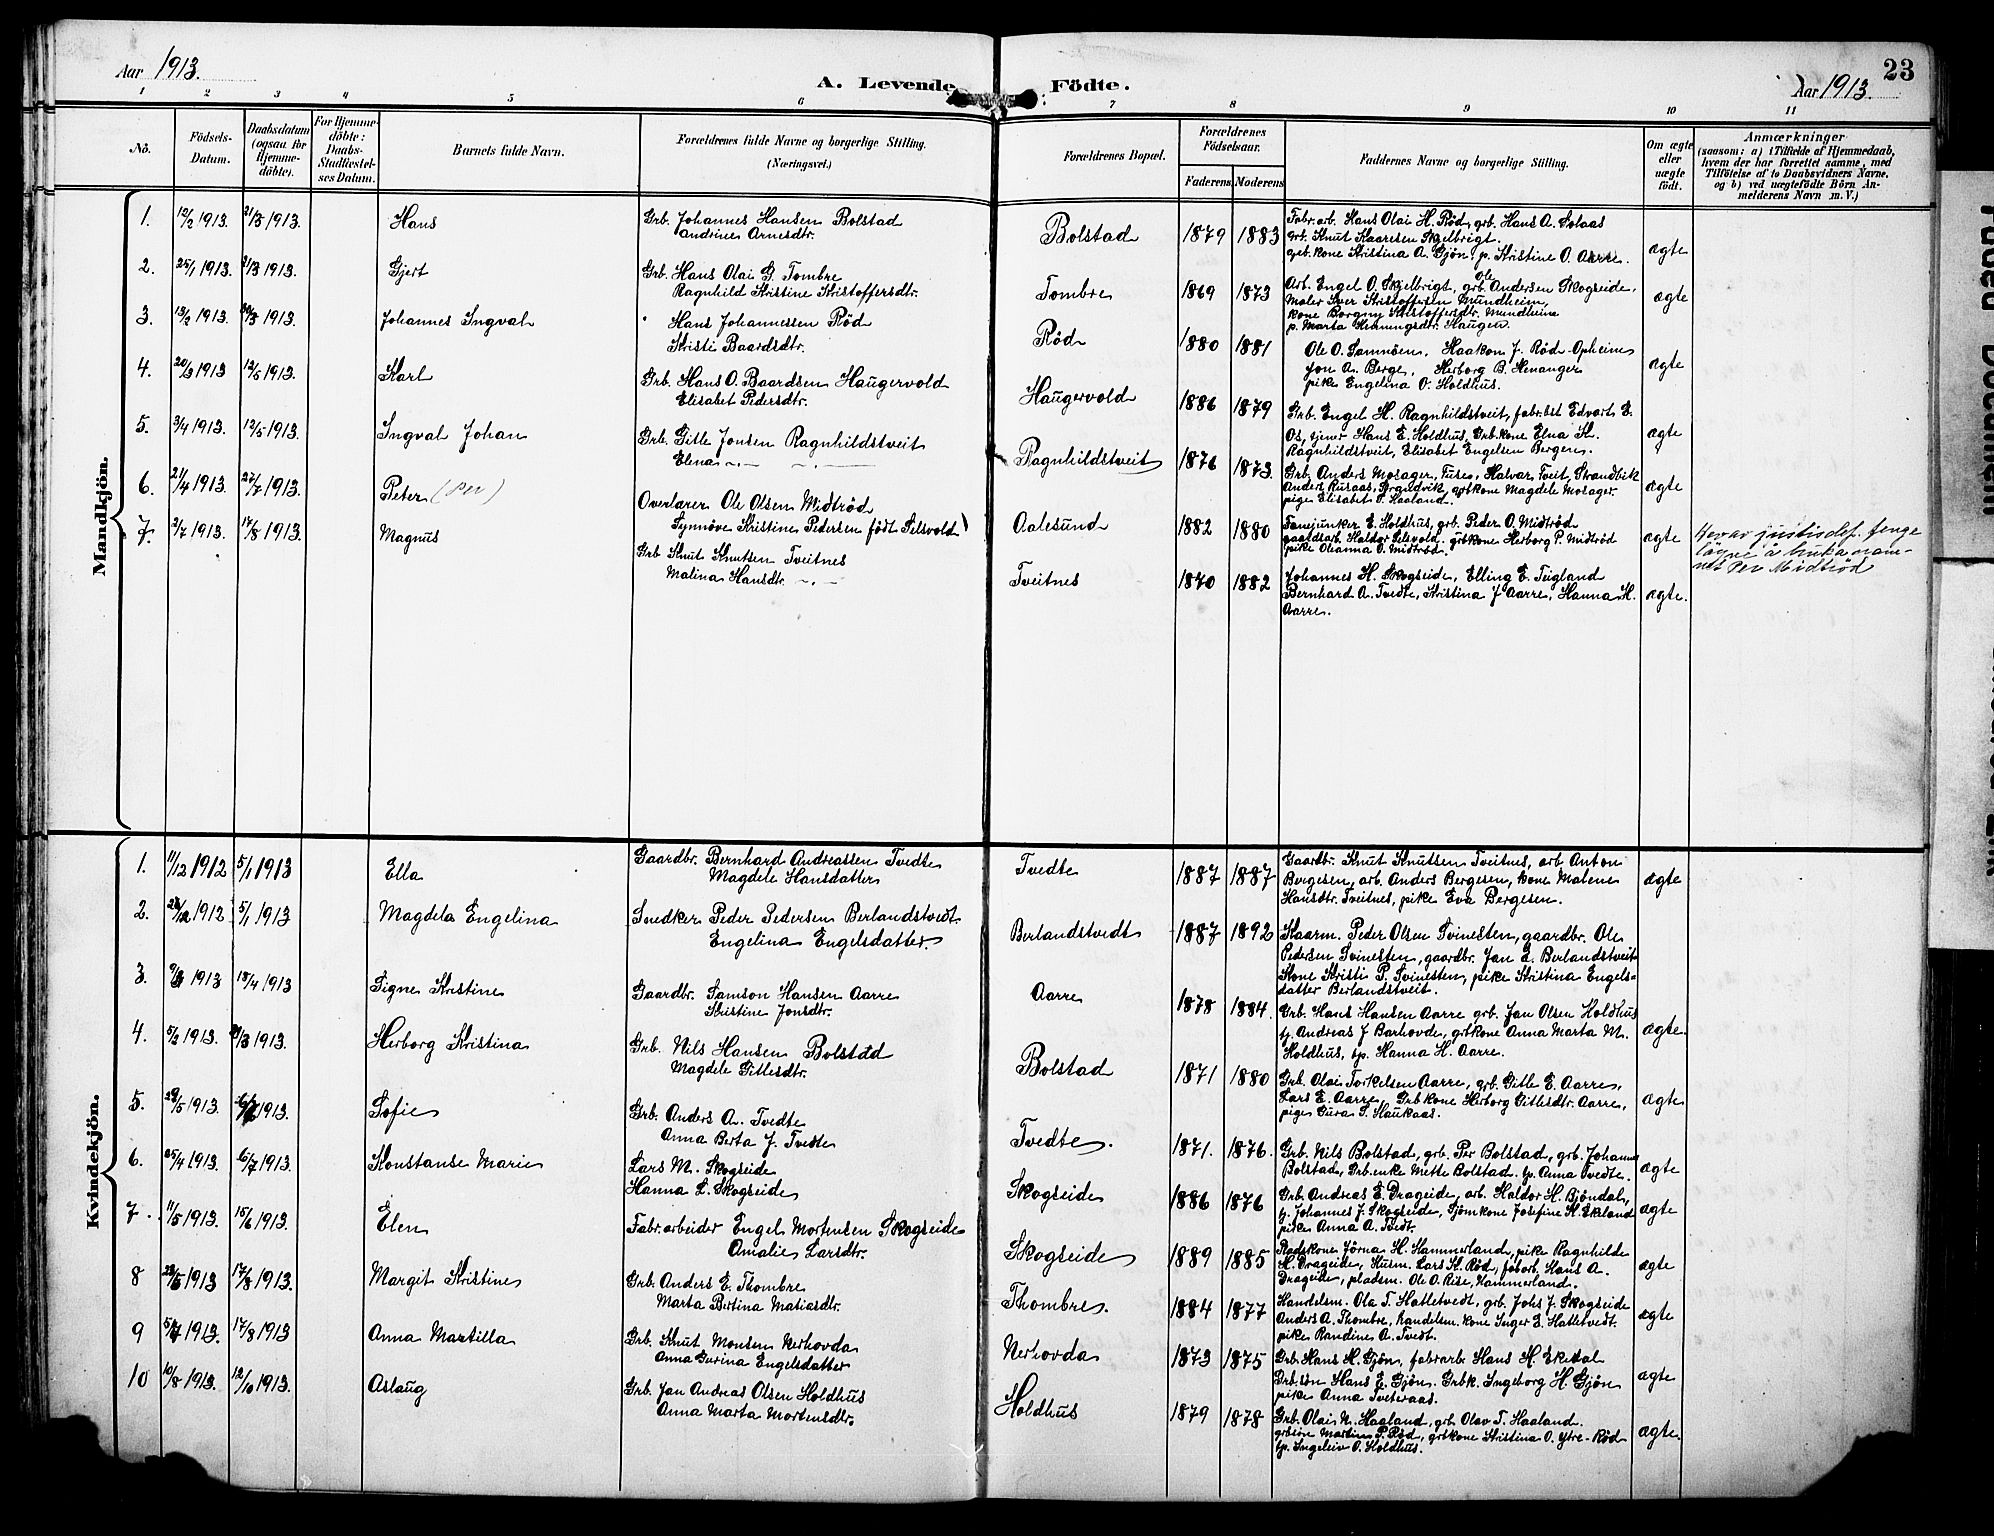 Aar 1913.
A. Levende Födte.
Aar 1913.
23
1 2 3 4 5 6 7 8 9 10 11
No.
Födsels-Datum.
Daabsdatum (ogsaa for Hjemme-döbte).
For Hjemme-döbte: Daabs-Stadfæstel-ses Datum.
Barnets fulde Navn.
Forældrenes fulde Navne og borgerlige Stilling. (Næringsvei.)
Forældrenes Bopæl.
Forældrenes Födselsaar.
Faderens Moderens
Faddernes Navne og borgerlige Stilling.
Om ægte eller uægte födt.
Anmærkninger
(saasom: a) i Tilfælde af Hjemmedaab, hvem der har forrettet samme, med Tilföielse af to Daabsvidners Navne, og b) ved uægtefödte Börn An-melderens Navn m. V.)
Mandkjön.
1. 12/2 1913. 21/3 1913. Hans
Grb. Johannes Hansen Bolstad
Andrine Arnesdtr.
Bolstad 1879 1883
Fabr. arb. Hans Olai H. Röd, grb. Hans A. Solaas
grb. Knut Kaaresen Skjelbrigt.
geb. kone Kristina A. Gjön, p. Kristine O. Aarre.
ægte
2. 25/1 1913. 21/3 1913. Gjert
Grb. Hans Olai G. Tombre
Ragnhild Kristine Kristoffersdtr.
Tombre 1869 1873
Arb. Engel O. Skjelbrigt, grb. Ole Andersen Skogseide,
Maler Iver Kristoffersen Mundheim,
kone Borgny Kristoffersdtr. Mundheim
p. Marta Henningsdtr. Haugen.
ægte
3. 13/2 1913. 24/3 1913. Johannes Ingval
" Hans Johannessen Röd
Kristi Baardsdtr.
Röd 1880 1881
Ole O. Samnöen, Haakon J. Röd-Opheim
Jon A. Berge, Herborg B. Henanger
pike Engelina O. Holdhus.
ægte
4. 20/3 1913 12/5 1913. Karl
Grb. Hans O. Baardsen Haugervold
Elisabet Pedersdtr.
Haugervold 1886 1879
Grb. Engel H. Ragnhildstveit, fabr. bst Edvart E.
Os, tjener Hans E. Holdhus, Grb.kone Elna K.
Ragnhildstveit, Elisabet Engelsen Bergen.
ægte
5. 3/4 1913. 12/5 1913. Ingval Johan
Grb. Gitle Jonsen Ragnhildstveit
Elena -"- -"-
Ragnhildstveit 1876 1873.
Grb. Anders Mosager, Fuse, Halvar Tveit, Strandvik
Anders Rusaas, Strandvik, grbkone Magdele Mosager.
pige Elisabet T. Haaland.
ægte
6. 21/4 1913. 27/7 1913. Peter (Per)
Overlærer Ole Olsen Midtröd
Synnöve Kristine Pedersen födt Selsvold)
Aalesund 1882 1880
Fanejunker E. Holdhus, grb. Peder O. Midtröd
gaardarb. Haldor Selsvold, grbkone Herborg P. Midtröd
pike Ohanna O. Midtröd.
ægte
Hevar justisdep. fenge löyve å bruka nam-net Per Midtröd
7. 2/7 1913. 17/8 1913. Magnus
Grb Knut Knutsen Tveitnes
Malina Hansdtr. -"-
Tveitnes 1870 1882
Johannes H. Skogseide, Elling E. Teigland
Bernhard A. Tvedte, Kristina J Aarre, Hanna H.
Aarre.
ægte.
Kvindekjön.
1. 11/12 1912 5/1 1913 Ella
Gaardbr. Bernhard Andreassen Tvedte
Magdele Hansdatter
Tvedte 1887 1887
Gaardbr. Knut Knutsen Tveitnes, arb. Anton
Bergesen, arb. Anders Bergesen, kone Malene
Hansdtr. Tveitnes, pike Eva Bergesen.
ægte
2. 1912 5/1 1913 Magdela Engelina
Snedker Peder Pedersen Berlandstvedt.
Engelina Engelsdatter
Berlandstvedt 1887 1892
Kaarm. Peder Olsen Tvinesten, gaardbr. Ole
Pedersen Tvinesten, gaardbr. Jan L. Berlandstveit
Kone Kristi P. Tvinesten, pike Kristina Engels-
datter Berlandstveit.
3. 1913 13/4 1913 Signe Kristine
Gaardbr. Samson Hansen Aarre
Kristine Jonsdtr.
Aarre 1878 1884.
Grb. Hans Hansen Aarre grb. Jan Olsen Holdhus
Andreas J Barhovde, grbkone Anna Marta M.
Holdhus, tp. Hanna H. Aarre.
ægte.
4. 5/2 1913. 21/3 1913. Herborg Kristina
Grb. Nils Hansen Bolstad
Magdele Gitlesdtr.
Bolstad 1871 1880
Grb. Olai Torkelsen Aarre, grb. Gitle E. Aarre,
Lars E. Aarre, Grbkone Herborg Gitlesdtr. Aarre,
pige Gura T. Haukaas.
ægte
5. 1913. 1913. Sofie
Grb. Anders A. Tvedte
Anna Berta J. Tvedte
Tvedte. 1871. 1876.
Grb. Nils Bolstad, grb. Per Bolstad, grb. Johannes
Bolstad, Grb. enke Mette Bolstad. tp. Anna Tvedte.
ægte
6. 25/4 1913. 6/7 1913. Konstanse Marie
Lars M. Skogseide
Hanna L. Skogseide
Skogseide 1886 1876
Grb. Andreas E. Drageide, arb. Haldor H. Björndal,
Johannes J. Skogseide, Sjömkone Josefine K. Eksland
pike Anna A. Tvedt.
ægte
7. 11/5 1913. 15/6 1913. Elen
Fabr. arbeider Engel Mortensen Skogseide
Amalie Larsdtr.
Skogseide 1889 1885
Rodekone Jörna H. Hammerland, pike Ragnhilde
H. Drageide, Husm. Lars K. Röd, Hans A.
Drageide, pladsm. Ole O. Rise, Hammerland.
ægte
8 1913 17/8 1913. Margit Kristine
Grb. Anders E. Thombre
Marta Bertina Matiasdtr.
Thombre. 1884 1877
Handelsm. Ole T. Hatletvedt, grb. Johs J. Skogseide
Anders A. Thombre, handelsm. kone Inger L. Hatletvedt.
pike Randine A. Tvedt.
ægte
9 5/7 1913. 17/8 1913 Anna Martilla
Grb. Knut Monsen Nerhovda
Anna Gurina Engelsdatter
Nerhovda 1873 1875
Grb. Hans H. Gjön, fabrarb Hans H. Ekedal
Grb.sön Hans E. Gjön. Grbk. Ingeborg H. Gjön
pike Anna Tveteraas.
ægte
10 10/8 1913. 12/10 1913. Aslaug
Grb. Jan Andreas Olsen Holdhus
Anna Marta Mortensdtr.
Holdhus 1879 1878
Grb. Olai N. Haaland, grb. Olav T. Haaland.
grbsön Martin P. Röd, grbkone Kristina O. Ytre-Röd
tp. Ingeleiv O. Holdhus.
ægte.